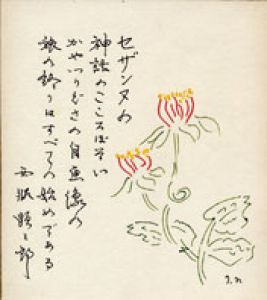 セザンヌの
神話のこころぼそい
かやつりぐさの自画像の
旅の終りはすべての始めである
西脇順三郎
J.N